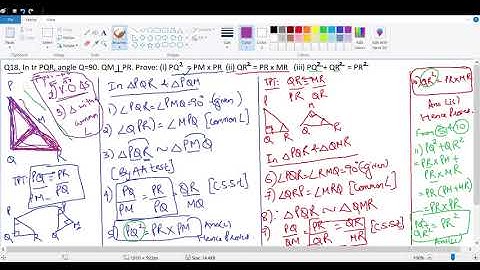 Q18. In tr PQR, angle Q=90. QM⊥PR. Prove: (i) PQ² = PM x PR (ii) QR² = PR x MR (iii) PQ²+ QR² = PR²
In △PQR & △PQM
1) ∠PQR = ∠PMQ = 90° (given)
2) ∠QPR = ∠MPQ [common L]
3) △PQR ~ △PMQ
[By AA test]
4) PQ/PM = PR/PQ = QR/MQ [C.S.S.t]
5) PQ² = PR x PM
Ans(i)
Hence Proved
TPT: PQ/PM = PR/PQ
TPT: QR/PR = MR/QR
In △PQR & △QMR
6) ∠PQR = ∠QMR = 90° (given)
7) ∠QRP = ∠MRQ [Common L]
8) ∴ △PQR ~ △QMR
9) PQ/QM = PR/QR = QR/MR [C.S.S.t]
10) QR² = PR x MR
Ans (ii)
Hence Proved
From 5 & 10
11) PQ² + QR²
= PR x PM +
PR x MR
= PR (PM + MR)
= PR x PR
PQ² + QR² = PR²
Ans (iii)
Hence Proved
100%